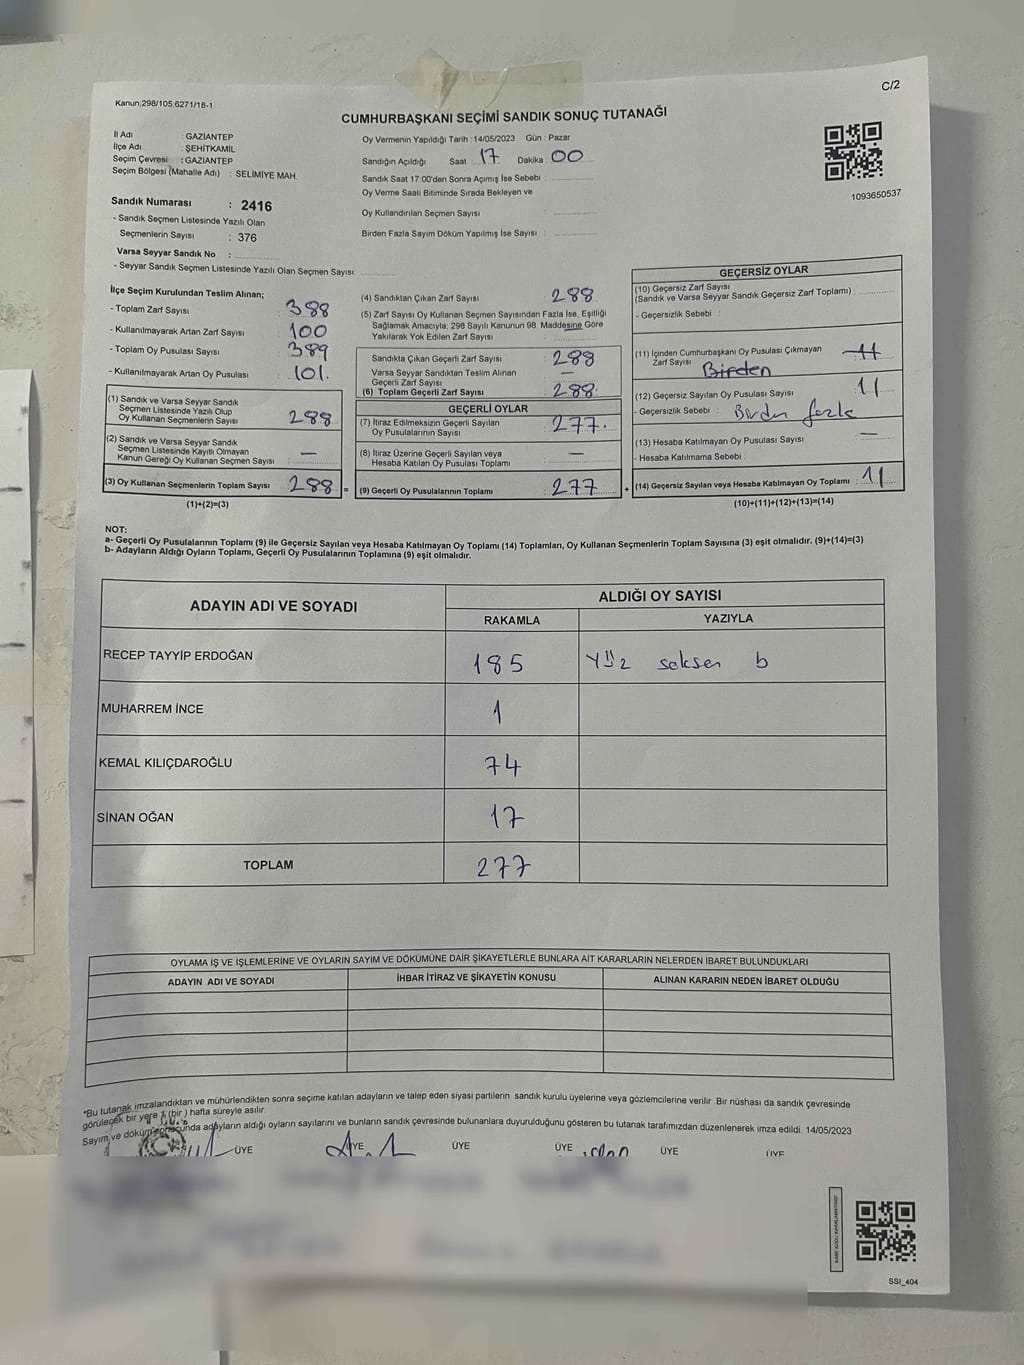 C/2
Kanun;298/105;6271/18-1
CUMHURBAŞKANI SEÇİMİ SANDIK SONUÇ TUTANAĞI
İl Adı : GAZİANTEP
İlçe Adı : ŞEHİTKAMİL
Seçim Çevresi : GAZİANTEP
Seçim Bölgesi (Mahalle Adı) : SELİMİYE MAH.
Sandık Numarası : 2416
- Sandık Seçmen Listesinde Yazılı Olan
Seçmenlerin Sayısı : 376
Varsa Seyyar Sandık No :
- Seyyar Sandık Seçmen Listesinde Yazılı Olan Seçmen Sayısı:
Oy Vermenin Yapıldığı Tarih : 14/05/2023 Gün : Pazar
Sandığın Açıldığı Saat 17 Dakika 00
Sandık Saat 17:00'den Sonra Açımış İse Sebebi :
Oy Verme Saali Bitiminde Sırada Bekleyen ve
Oy Kullandırılan Seçmen Sayısı :
Birden Fazla Sayım Döküm Yapılmış İse Sayısı :
1093650537
İlçe Seçim Kurulundan Teslim Alınan;
- Toplam Zarf Sayısı : 388
- Kullanılmayarak Artan Zarf Sayısı : 100
- Toplam Oy Pusulası Sayısı : 389
- Kullanılmayarak Artan Oy Pusulası : 101.
(1) Sandık ve Varsa Seyyar Sandık
Seçmen Listesinde Yazılı Olup
Oy Kullanan Seçmenlerin Sayısı : 288
(2) Sandık ve Varsa Seyyar Sandık
Seçmen Listesinde Kayıtlı Olmayan
Kanun Gereği Oy Kullanan Seçmen Sayısı : —
(3) Oy Kullanan Seçmenlerin Toplam Sayısı : 288 =
(1)+(2)=(3)
(4) Sandıktan Çıkan Zarf Sayısı : 288
(5) Zarf Sayısı Oy Kullanan Seçmen Sayısından Fazla İse, Eşitliği
Sağlamak Amacıyla; 298 Sayılı Kanunun 98. Maddesine Göre
Yakılarak Yok Edilen Zarf Sayısı :
Sandıkta Çıkan Geçerli Zarf Sayısı : 288
Varsa Seyyar Sandıktan Teslim Alınan
Geçerli Zarf Sayısı : —
(6) Toplam Geçerli Zarf Sayısı : 288.
GEÇERLİ OYLAR
(7) İtiraz Edilmeksizin Geçerli Sayılan
Oy Pusulalarının Sayısı : 277.
(8) İtiraz Üzerine Geçerli Sayılan veya
Hesaba Katılan Oy Pusulası Toplamı : —
(9) Geçerli Oy Pusulalarının Toplamı : 277 +
GEÇERSİZ OYLAR
(10) Geçersiz Zarf Sayısı
(Sandık ve Varsa Seyyar Sandık Geçersiz Zarf Toplamı) :
- Geçersizlik Sebebi :
(11) İçinden Cumhurbaşkanı Oy Pusulası Çıkmayan
Zarf Sayısı : 11
Birden
(12) Geçersiz Sayılan Oy Pusulası Sayısı : 11
- Geçersizlik Sebebi : Birden fazla
(13) Hesaba Katılmayan Oy Pusulası Sayısı : —
- Hesaba Katılmama Sebebi :
(14) Geçersiz Sayılan veya Hesaba Katılmayan Oy Toplamı : 11
(10)+(11)+(12)+(13)=(14)
NOT:
a- Geçerli Oy Pusulalarının Toplamı (9) ile Geçersiz Sayılan veya Hesaba Katılmayan Oy Toplamı (14) Toplamları, Oy Kullanan Seçmenlerin Toplam Sayısına (3) eşit olmalıdır. (9)+(14)=(3)
b- Adayların Aldığı Oyların Toplamı, Geçerli Oy Pusulalarının Toplamına (9) eşit olmalıdır.
ADAYIN ADI VE SOYADI ALDIĞI OY SAYISI
RAKAMLA YAZIYLA
RECEP TAYYİP ERDOĞAN 185 Yüz seksen b
MUHARREM İNCE 1
KEMAL KILIÇDAROĞLU 74
SİNAN OĞAN 17
TOPLAM 277
OYLAMA İŞ VE İŞLEMLERİNE VE OYLARIN SAYIM VE DÖKÜMÜNE DAİR ŞİKAYETLERLE BUNLARA AİT KARARLARIN NELERDEN İBARET BULUNDUKLARI
ADAYIN ADI VE SOYADI İHBAR İTİRAZ VE ŞİKAYETİN KONUSU ALINAN KARARIN NEDEN İBARET OLDUĞU
*Bu tutanak imzalandıktan ve mühürlendikten sonra seçime katılan adayların ve talep eden siyasi partilerin sandık kurulu üyelerine veya gözlemcilerine verilir. Bir nüshası da sandık çevresinde
görülecek bir yere 1 (bir) hafta süreyle asılır.
Sayım ve döküm sonucunda adayların aldığı oyların sayılarını ve bunların sandık çevresinde bulunanlara duyurulduğunu gösteren bu tutanak tarafımızdan düzenlenerek imza edildi. 14/05/2023
ÜYE ÜYE ÜYE ÜYE ÜYE ÜYE
SSI_404